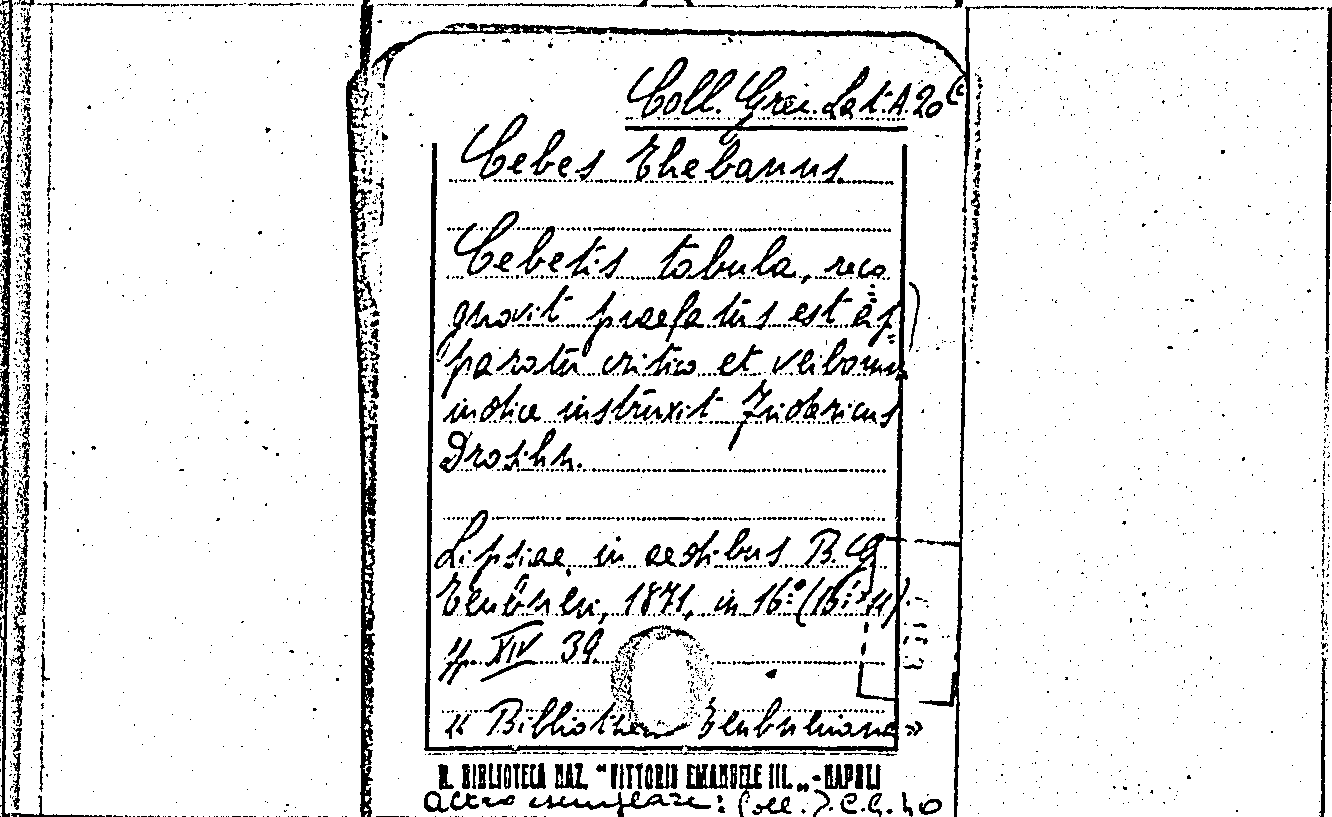 Coll. Graec. Lat. A. 20 (c
Cebes Thebanus
Cebetis tabula, reco
gnovit praefatus est ap
paratu critico et verborum
indice instruxit Fridericus
Drosihn.
Lipsiae, in aedibus B. G.
Teubneri, 1871, in 16°
pp. XIV 39
« Bibliotheca Teubneriana »
R. BIBLIOTECA NAZ. "VITTORIO EMANUELE III. „ - NAPOLI
altro esemplare: Coll.